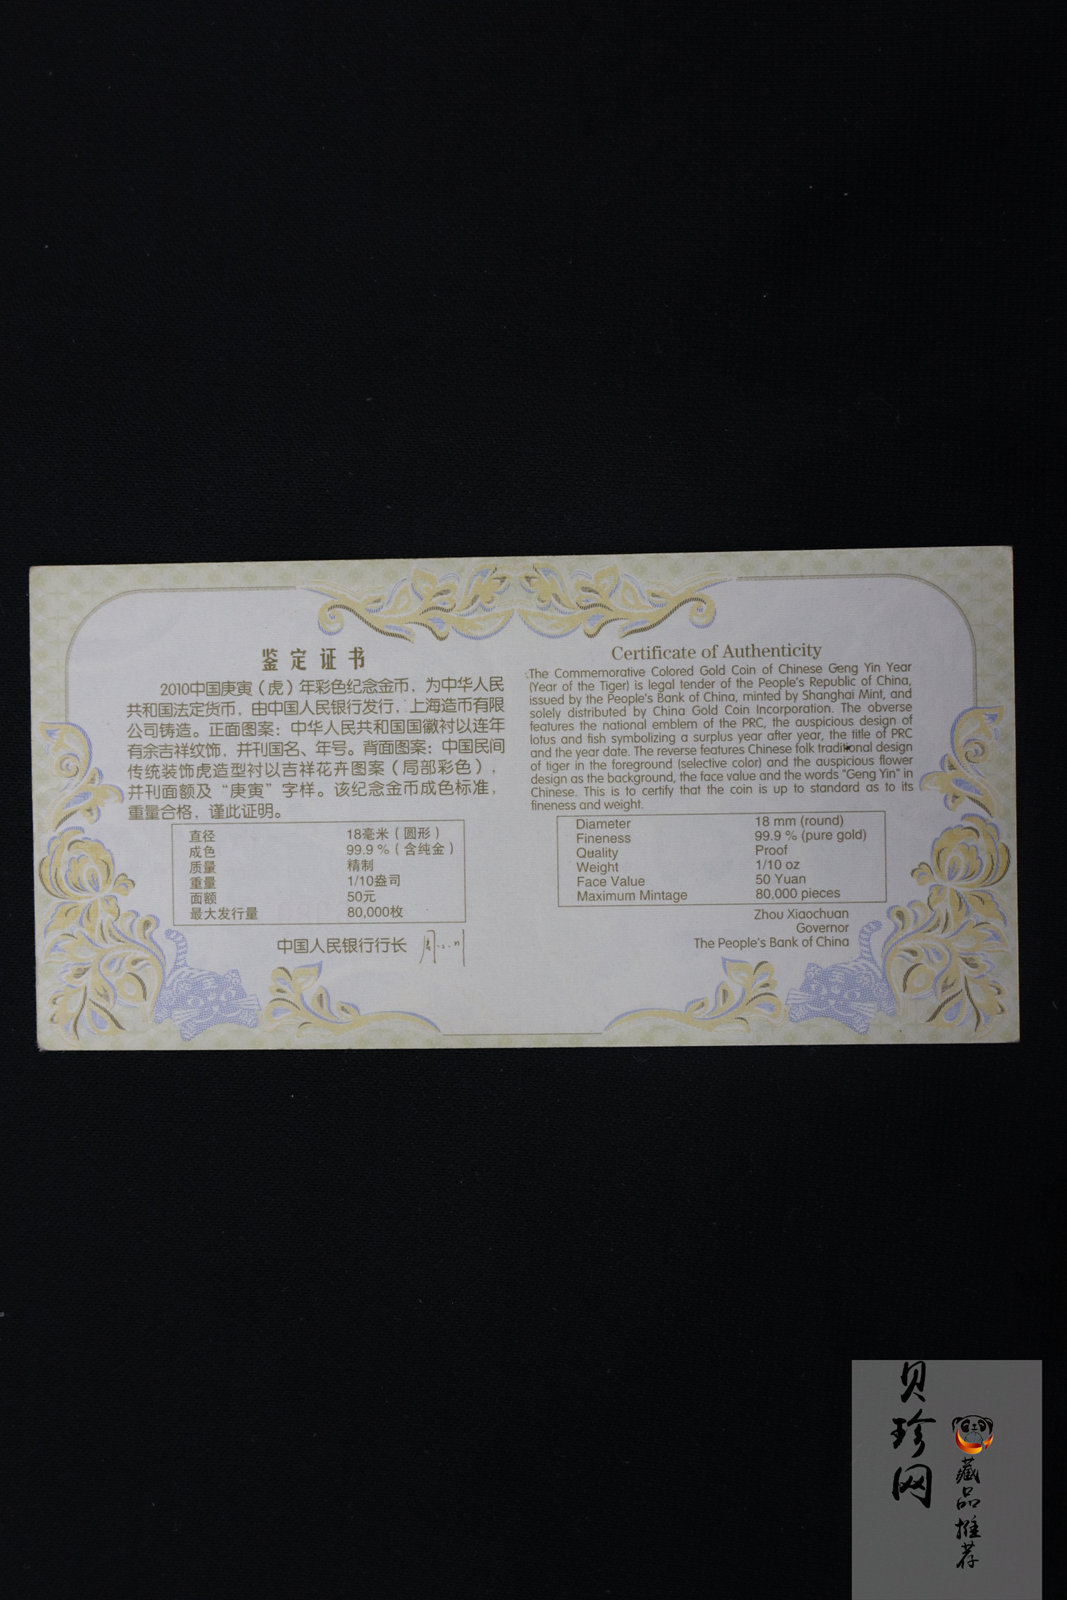 鉴定证书
2010中国庚寅（虎）年彩色纪念金币，为中华人民
共和国法定货币，由中国人民银行发行，上海造币有限
公司铸造。正面图案：中华人民共和国国徽衬以连年
有余吉祥纹饰，并刊国名、年号。背面图案：中国民间
传统装饰虎造型衬以吉祥花卉图案（局部彩色），
并刊面额及“庚寅”字样。该纪念金币成色标准，
重量合格，谨此证明。
直径 18毫米（圆形）
成色 99.9%（含纯金）
质量 精制
重量 1/10盎司
面额 50元
最大发行量 80,000枚
中国人民银行行长
Certificate of Authenticity
The Commemorative Colored Gold Coin of Chinese Geng Yin Year
(Year of the Tiger) is legal tender of the People's Republic of China,
issued by the People's Bank of China, minted by Shanghai Mint, and
solely distributed by China Gold Coin Incorporation. The obverse
features the national emblem of the PRC, the auspicious design of
lotus and fish symbolizing a surplus year after year, the title of PRC
and the year date. The reverse features Chinese folk traditional design
of tiger in the foreground (selective color) and the auspicious flower
design as the background, the face value and the words "Geng Yin" in
Chinese. This is to certify that the coin is up to standard as to its
fineness and weight.
Diameter 18 mm (round)
Fineness 99.9 % (pure gold)
Quality Proof
Weight 1/10 oz
Face Value 50 Yuan
Maximum Mintage 80,000 pieces
Zhou Xiaochuan
Governor
The People's Bank of China
贝珍网
藏品推荐